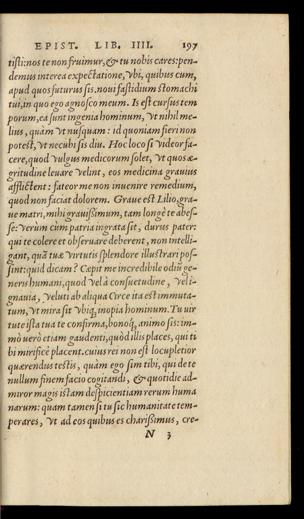 EPIST. LIB. IIII. 197
tisti: nos te non fruimur, & tu nobis cares: pen-
demus interea expectatione, vbi, quibus cum,
apud quos futurus sis. noui fastidium stomachi
tui, in quo ego agnosco meum. Is est cursus tem
porum, ea sunt ingenia hominum, vt nihil me-
lius, quàm vt nusquam: id quoniam fieri non
potest, vt necubi sis diu. Hoc loco si videor fa-
cere, quod vulgus medicorum solet, vt quos æ-
gritudine leuare velint, eos medicina grauius
afflictent: fateor me non inuenire remedium,
quod non faciat dolorem. Graue est Lilio, gra-
ue matri, mihi grauißimum, tam longè te abes-
se: verum cùm patria ingrata sit, durus pater:
qui te colere et obseruare deberent, non intelli-
gant, quā tuæ virtutis splendore illustrari pos-
sint: quid dicam? Cœpit me incredibile odiū ge-
neris humani, quod vel à consuetudine, vel i-
gnauia, veluti ab aliqua Circe ita est immuta-
tum, vt mira sit vbiq; inopia hominum. Tu uir
tute ista tua te confirma, bonoq; animo sis: im-
mò uerò etiam gaudenti, quòd illis places, qui ti
bi mirificè placent. cuius rei non est locupletior
quærendus testis, quàm ego sim tibi, qui de te
nullum finem facio cogitandi, & quotidie ad-
miror magis istam despicientiam rerum huma
narum: quam tamen si tu sic humanitate tem-
perares, vt ad eos quibus es charißimus, cre-
N 3